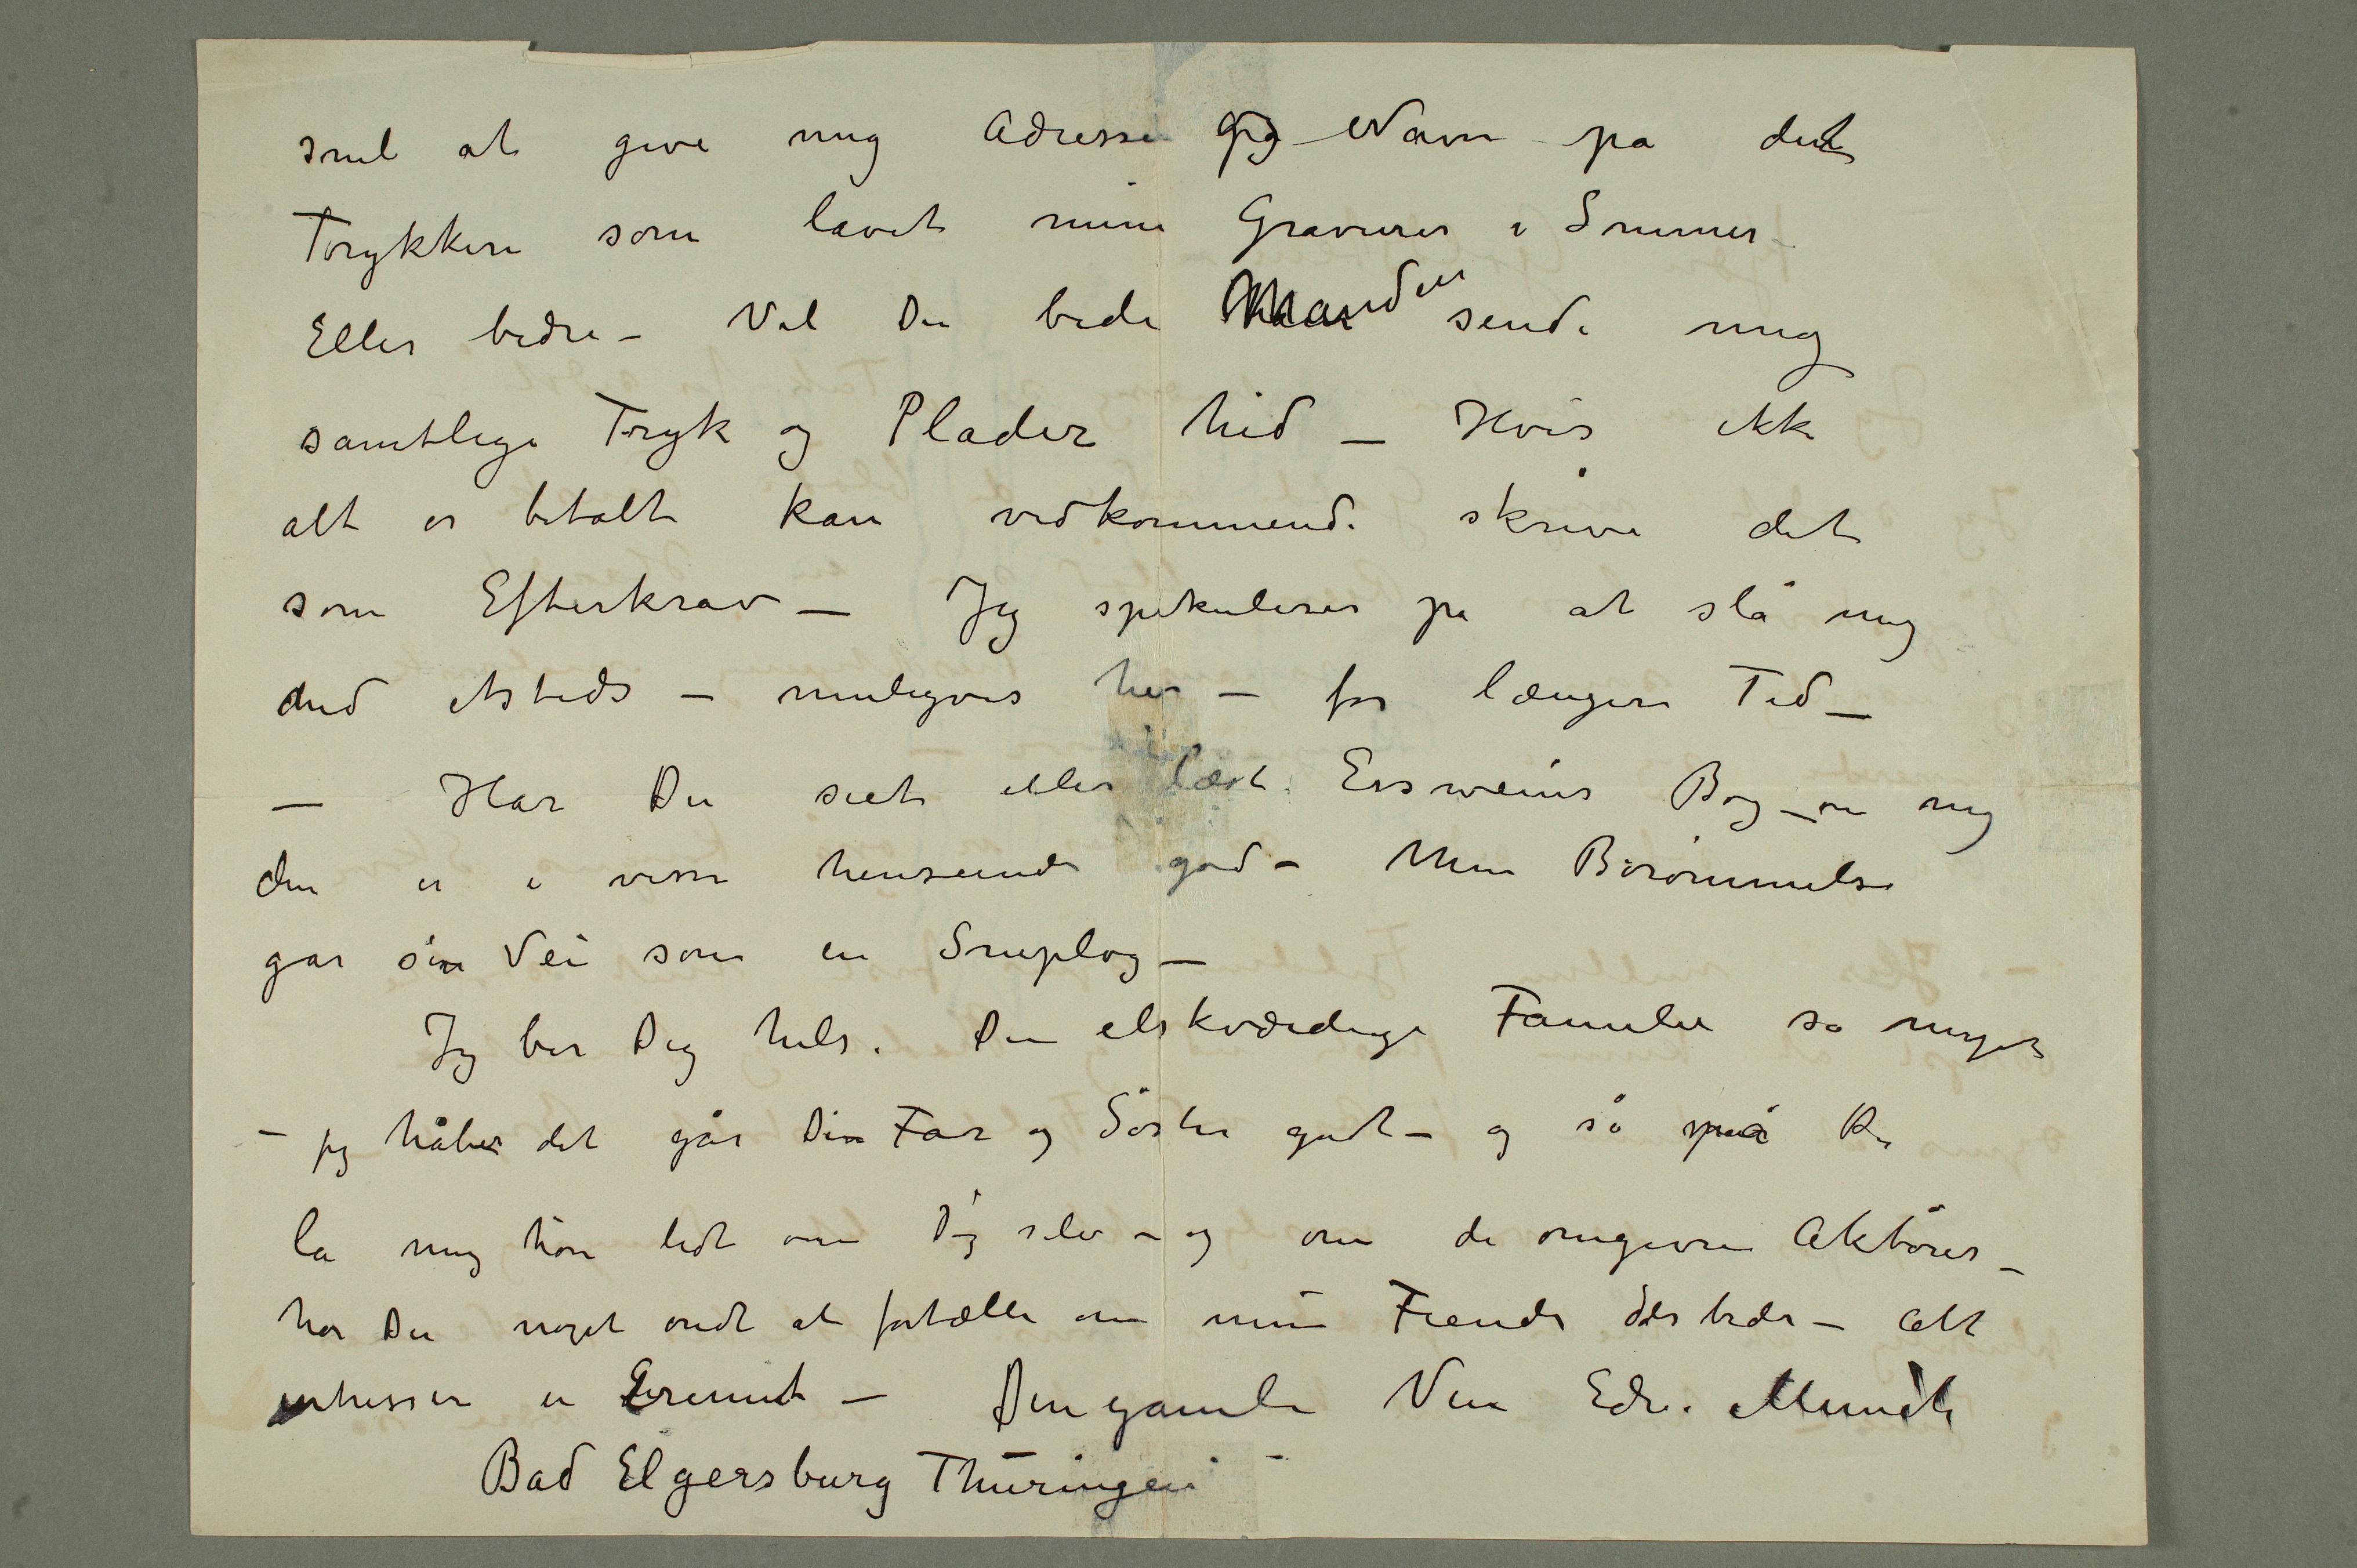 snil at give mig Adresse og Navn på det
Trykkeri som lavet mine Gravurer i Sommer
Eller bedre – Vil Du bede Manden sende mig
samtlige Tryk og Plader hid – Hvis ikke
alt er betalt kan vedkommende skrive det
som Efterkrav – Jeg spekulerer på at slå mig
ned etsteds – muligvis her – for længere Tid –
– Har Du seet eller læst Essweins Bog – om mig
den er i visse henseende god – Min Berömmelse
gar sin Vei som en Sneplog –
Jeg ber Dig hilse Din elskværdige Familie så meget
– jeg håber det går Din Far og Söster godt – og så må Du
la mig höre lidt om Dig selv – og om de omgivne Aktörer –
har Du noget ondt at fortælle om mine Fiender des bedre – Alt
intresserer en Eremit – Din gamle Ven Edv. Munch
Bad Elgersburg Thüringen –